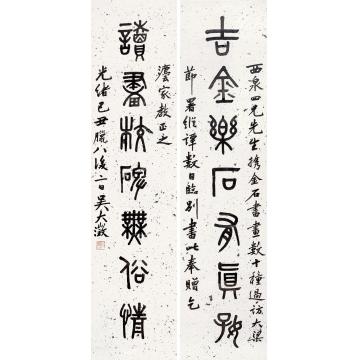 西泉四兄先生携金石書畫數十種過訪大梁
吉金樂石有眞好
節署縱譚數日臨別書此奉贈乞
灋家教正之
讀畫校碑無俗情
光緒己丑臘八後二日吳大澂